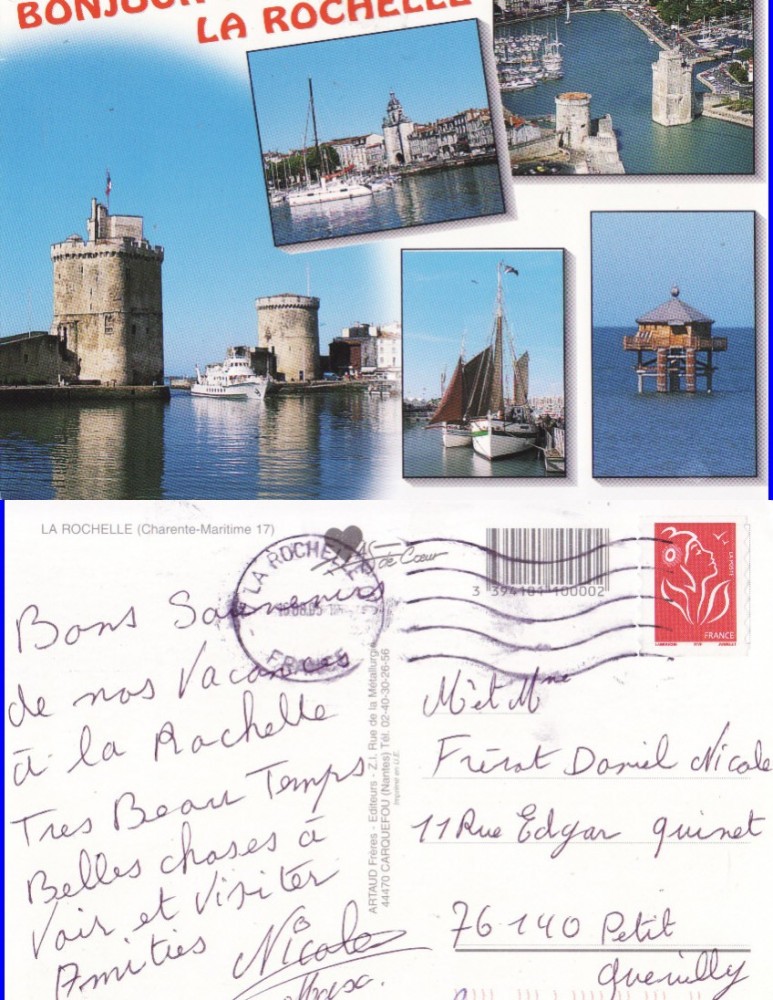 BONJOUR
LA ROCHELLE
LA ROCHELLE (Charente-Maritime 17)
AS de Cœur
LA ROCHELLE
FRCES
3 394101 100002
LA POSTE
FRANCE
Bons Souvenirs
de nos Vacances
à la Rochelle
Tres Beau Temps
Belles choses à
Voir et Visiter
Amitiés Nicole
ARTAUD Frères - Editeurs - Z.I. Rue de la Métallurgie
44470 CARQUEFOU (Nantes) Tél. 02-40-30-26-56
Imprimé en U.E.
Mr et Mme
Frérot Daniel Nicole
11 Rue Edgar Quinet
76140 Petit
Quevilly